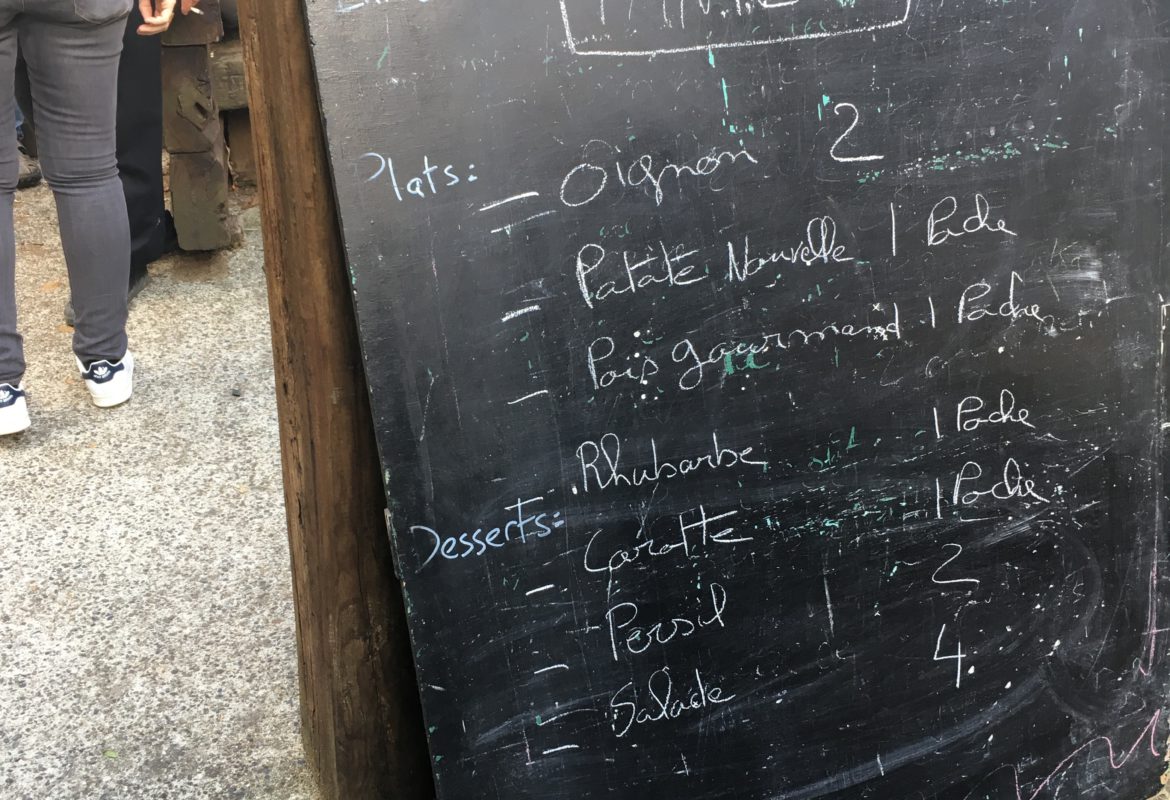 PANIE
Plats:
Oignon 2
Patate Nouvelle 1 Poche
Pois gourmand 1 Poche
Rhubarbe 1 Poche
Desserts:
Carotte 1 Poche
Persil 2
Salade 4